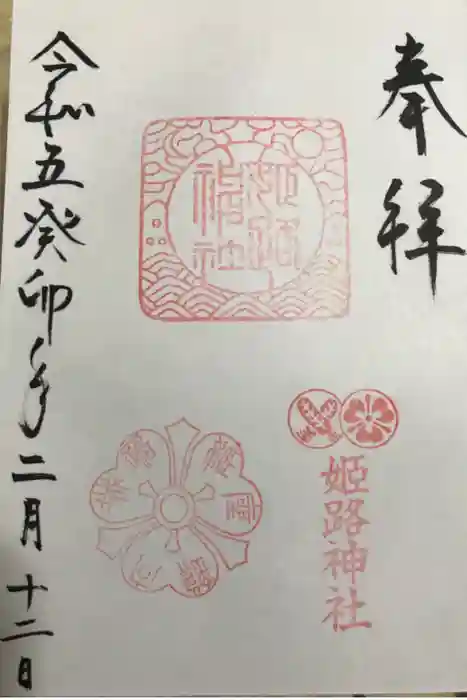 奉拝
姫路神社
姫路神社
令和五癸卯年二月十二日